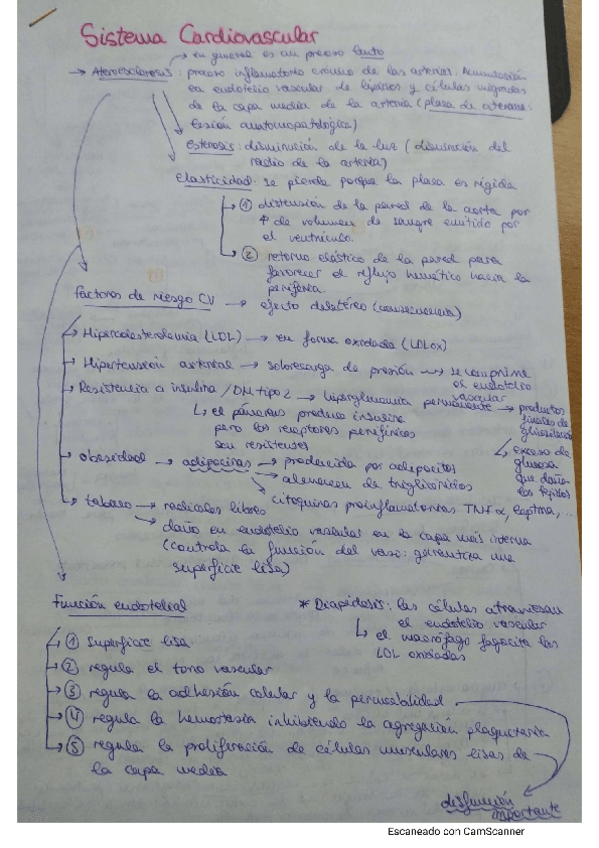 Sistema Cardiovascular
→ en general es un proceso lento
→ Ateroesclerosis: proceso inflamatorio crónico de las arterias. Acumulación
en endotelio vascular de lípidos y células migradas
de la capa media de la arteria (placa de ateroma:
lesión anatomopatológica)
Estenosis: disminución de la luz (disminución del
radio de la arteria)
Elasticidad: se pierde porque la placa es rígida
→ ① distensión de la pared de la aorta por
↑ de volumen de sangre emitido por
el ventrículo.
→ ② retorno elástico de la pared para
favorecer el reflujo hemático hacia la
periferia.
Factores de riesgo CV → efecto deletéreo (consecuencia)
→ Hipercolesterolemia (LDL) → en forma oxidada (LDLox)
→ Hipertensión arterial → sobrecarga de presión → se comprime
el endotelio
vascular
→ Resistencia a insulina / DM tipo 2 → hiperglucemia permanente → productos
finales de
glicosilación
↳ el páncreas produce insulina
pero los receptores periféricos
son resistentes
↳ exceso de
glucosa
que daña
los tejidos
→ obesidad → adipocinas → producida por adipocitos
→ almacen de triglicéridos
→ citoquinas proinflamatorias TNFα, leptina, ...
→ tabaco → radicales libres
→ daño en endotelio vascular en la capa más interna
(controla la función del vaso: garantiza una
superficie lisa)
Función endotelial
* Diapédesis: las células atraviesan
el endotelio vascular
↳ el macrófago fagocita las
LDL oxidadas
→ ① superficie lisa
→ ② regula el tono vascular
→ ③ regula la adhesión celular y la permeabilidad
→ ④ regula la hemostasia inhibiendo la agregación plaquetaria
→ ⑤ regula la proliferación de células musculares lisas de
la capa media
disfunción
importante
Escaneado con CamScanner